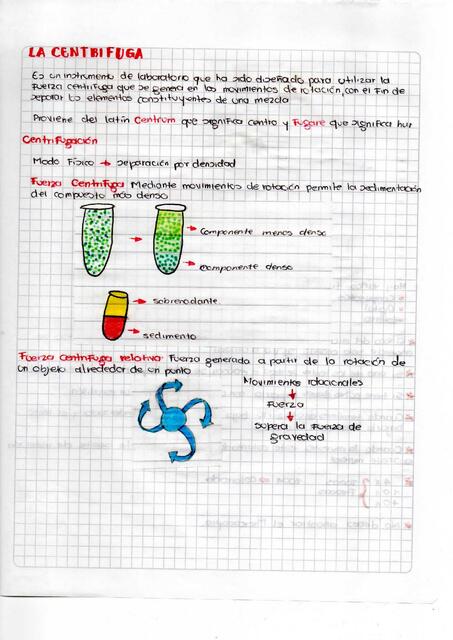 LA CENTRIFUGA
Es un instrumento de laboratorio que ha sido diseñado para utilizar la
Fuerza centrifuga que se genera en los movimientos de rotación, con el Fin de
separar los elementos constituyentes de una mezcla
Proviene del latin Centrum que significa centro y Fugare que significa huir
Centrifugación
Modo Físico → separación por densidad
Fuerza Centrifuga Mediante movimientos de rotación permite la sedimentación
del compuesto más denso
Componente menos denso
Componente denso
sobrenodante
sedimento
Fuerza centrifuga relativa: Fuerza generada a partir de la rotación de
un objeto alrededor de un punto
Movimientos rotacionales
Fuerza
supera la Fuerza de
gravedad